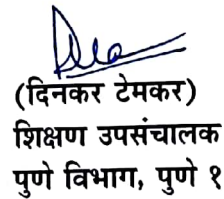 (दिनकर टेमकर)
शिक्षण उपसंचालक
पुणे विभाग, पुणे १